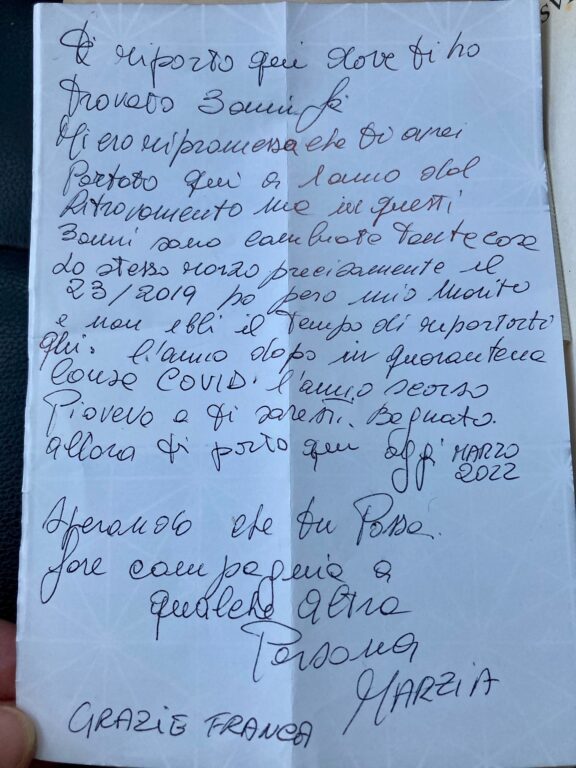 Ti riporto qui dove ti ho
trovato 3 anni fa
Mi ero ripromessa che ti arei
Portato qui a l'anno dal
Ritrovamento ma in questi
3 anni sono cambiate tante cose
Lo stesso marzo precisamente il
23/2019 però mio Marito
e non ebbi il tempo di riportarti
qui. L'anno dopo in quarantena
Causa COVID. L'anno scorso
Pioveva e ti saresti. Bagnato.
allora ti porto qui oggi MARZO
2022
sperando che tu Possa.
fare compagnia a
qualche altra
Persona
MARZIA
GRAZIE FRANCA
SV